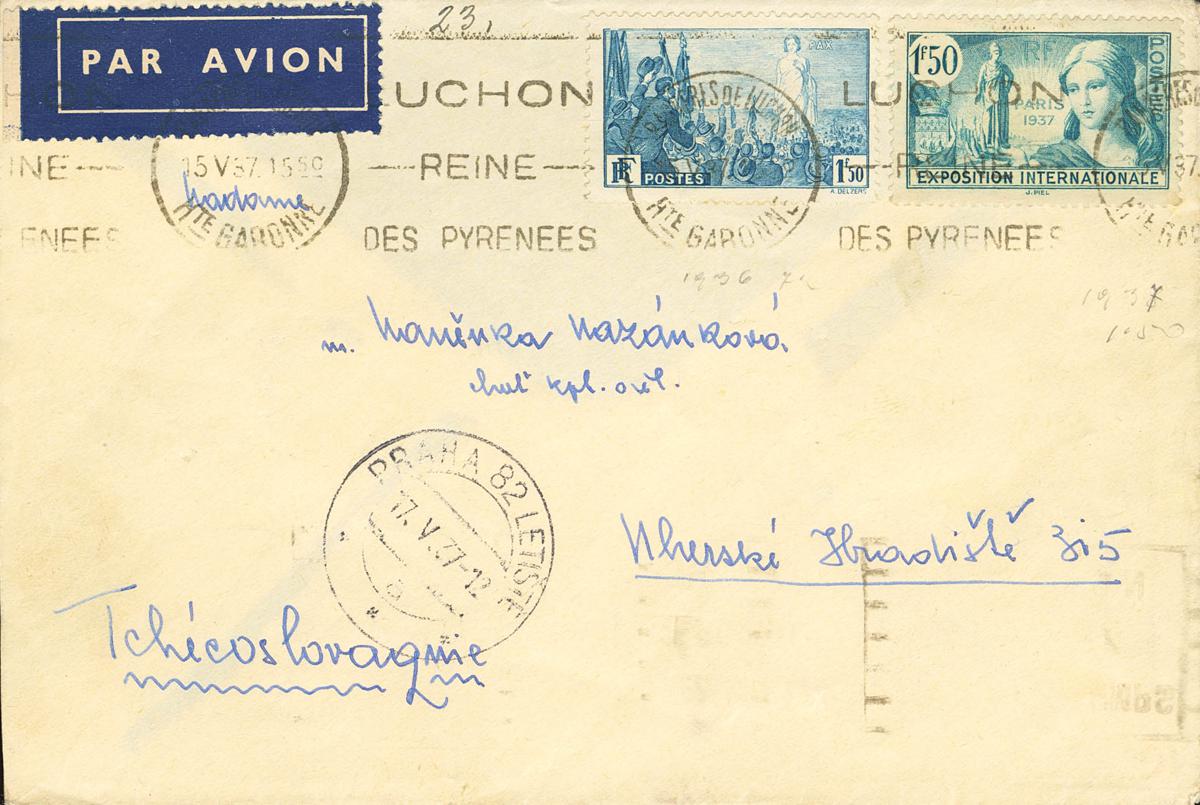 23,
PAR AVION
LUCHON
REINE
DES PYRENEES
15 V 37. 15
HTE GARONNE
PAX
RF
POSTES
1F50
A. DELZERS
RES DE LUCHON
HTE GARONNE
1F50
RF
POSTES
PARIS
1937
EXPOSITION INTERNATIONALE
J. PIEL
LUCHON
REINE
DES PYRENEES
Madame
1936
1937
1.50
m. Maněnka Mazánková
kpt.
PRAHA 82 LETIŠTĚ
17. V. 37-12
Uherské Hradiště 315
Tchécoslovaquie